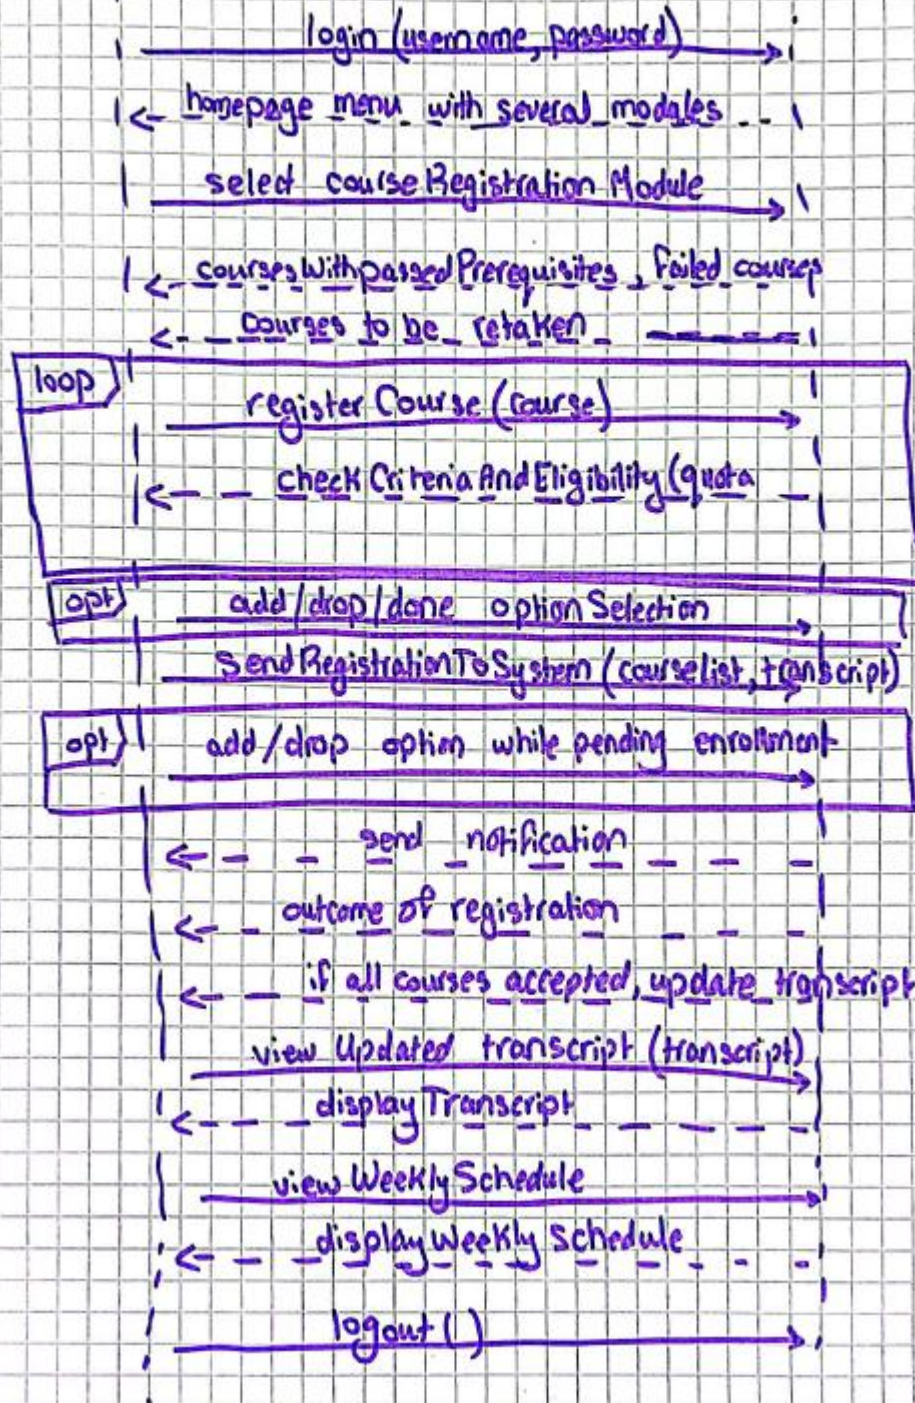 login (username, password)
homepage menu with several modules
select courseRegistration Module
coursesWithpassedPrerequisites, failed courses
courses to be retaken
loop
register Course (course)
checkCriteriaAndEligibility (quota
opt
add/drop/done optionSelection
SendRegistrationToSystem (courselist, transcript)
opt
add/drop option while pending enrollment
send notification
outcome of registration
if all courses accepted, update transcript
view Updated transcript (transcript)
displayTranscript
view WeeklySchedule
displayWeekly Schedule
logout ()